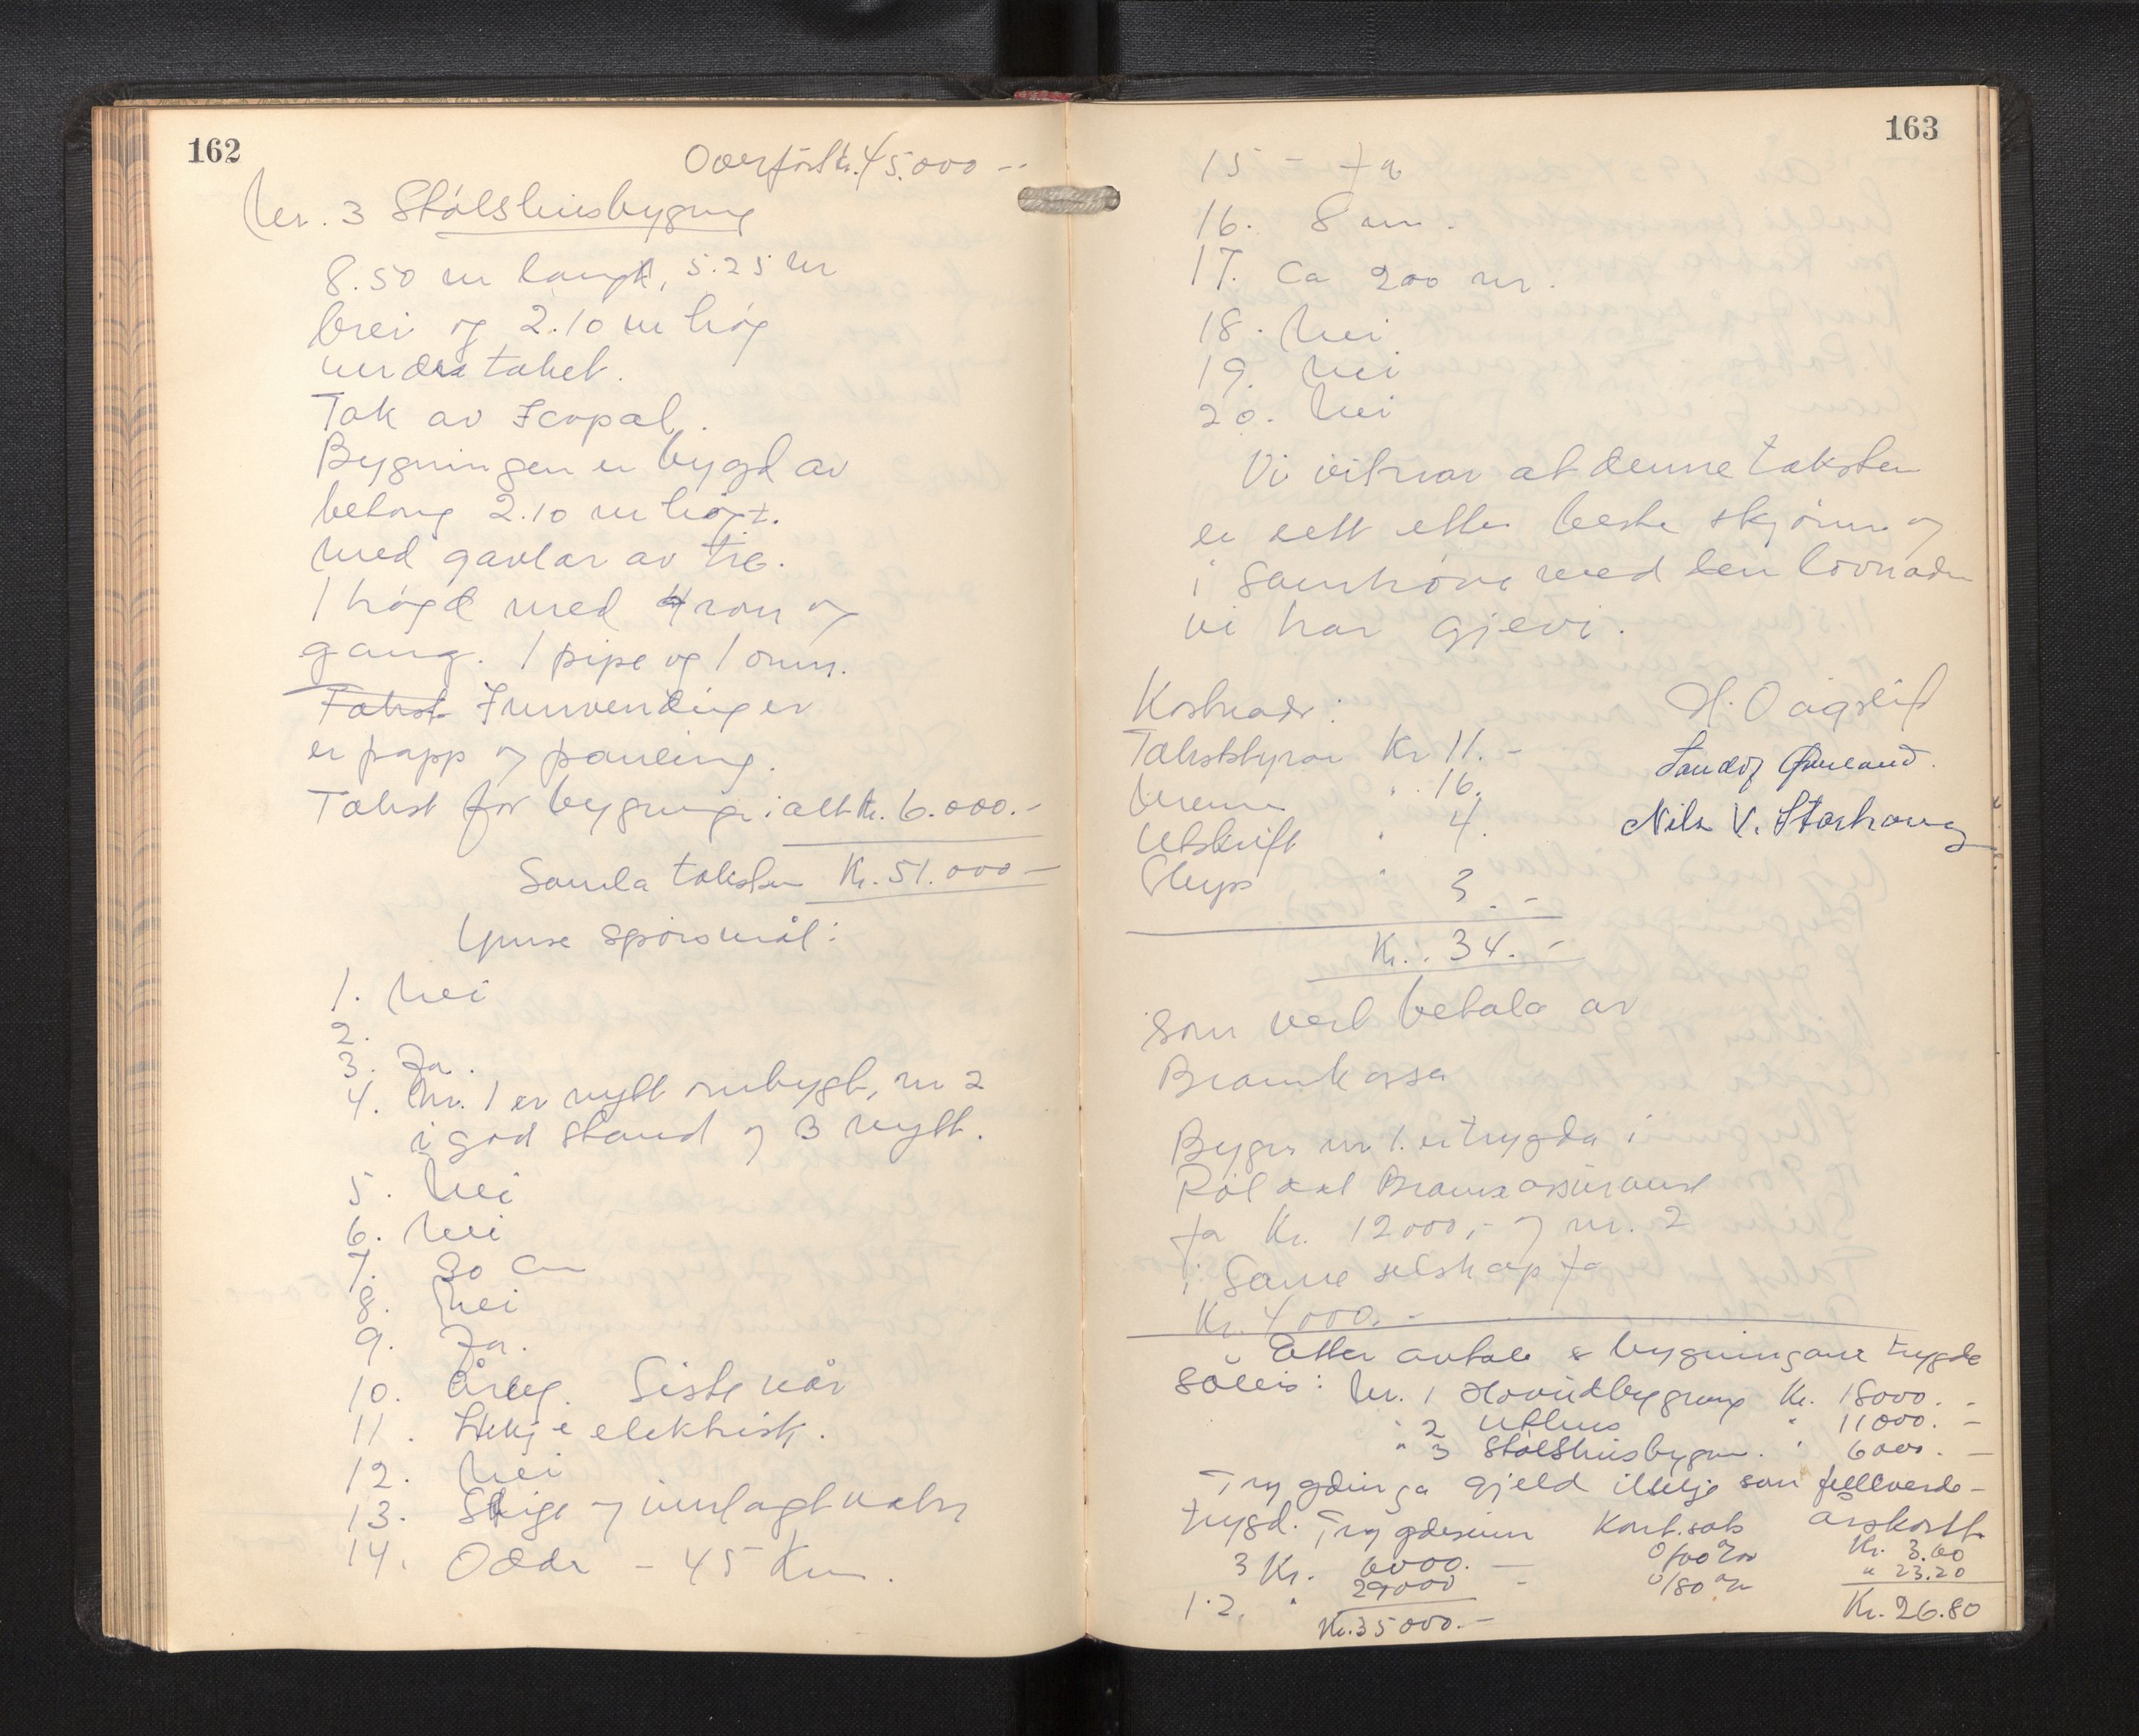 162
Overført kr. 45.000 --
Nr. 3 Stølshusbygning
8.50 m langt, 5.25 m
brei og 2.10 m høg
under taket.
Tak av Icopal.
Bygningen er bygd av
betong 2.10 m høgt.
med gavlar av tre.
1 høgd med 4 rom og
gang. 1 pipe og 1 omn.
Takst Innvendinger
er papp og paneling.
Takst for bygningen i alt kr. 6.000.-
Samla taksten Kr. 51.000 -
Ymse spørsmål:
1. Nei
2.
3. Ja.
4. Nr. 1 er nytt ombygt, nr 2
i god stand og 3 nytt.
5. Nei
6. Nei
7. 30 cm
8. Nei
9. Ja.
10. Årleg. Siste vår
11. Ikkje elektrisk.
12. Nei
13. Stige og innlagt vatn
14. Odda - 45 Km.
163
15 - Ja
16. 8 m.
17. Ca 200 m.
18. Nei
19. Nei
20. Nei
Vi vitnar at denne taksten
er sett etter beste skjønn og
i samhøve med den lovnaden
vi har gjevi.
Kostnader:
Takststyrar Kr 11. -
Menn " 16.
Utskrift " 4.
Skyss " 3. -
Kr. 34. -
H. Dagslid
Sandof
Nils V. Storhaug
som vert betala av
Brannkassa
Bygn nr 1. er trygda i
Røldal Brannassuranse
for Kr. 12000,- og nr. 2
i same selskap for
Kr. 4000. -
Etter avtale er bygningane trygda
såleis: Nr. 1 Hovudbygning Kr. 18000. -
" 2 Uthus " 11000. -
" 3 Stølshusbygn. " 6000. -
Trygdinga gjeld ikkje som fullverde-
trygd. Trygdesum Kont. sats årskont.
3 Kr. 6000. - 0/60 Kr. 3.60
1.2. " 29000 - 0/80 " 23.20
Kr. 35000. - Kr. 26.80